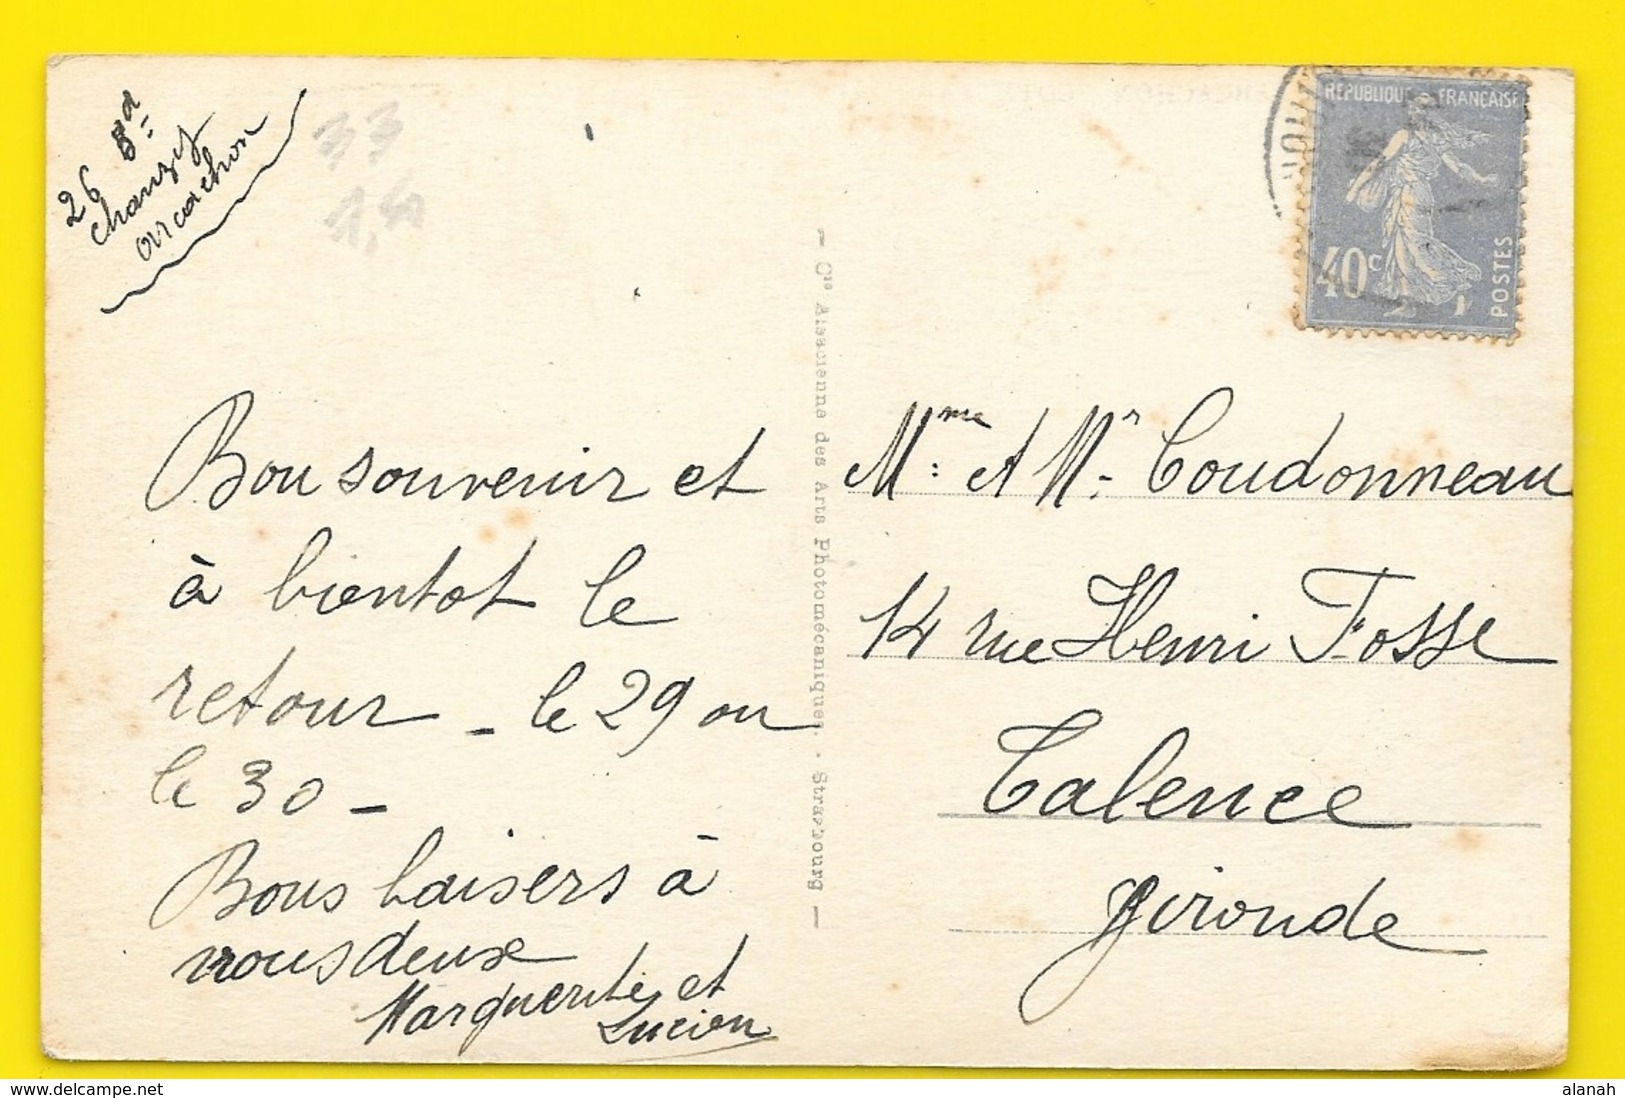 26 Bd
chanzy
arcachon
33
1,40
Bon souvenir et
à bientot le
retour _ le 29 ou
le 30 _
Bons baisers à
vous deux
Marguerite et
Lucien
— Cie Alsacienne des Arts Photomécaniques. · Strasbourg —
REPUBLIQUE FRANÇAISE
40c
POSTES
Mme et Mr Coudonneau
14 rue Henri Fosse
Talence
Gironde
www.delcampe.net
alanah